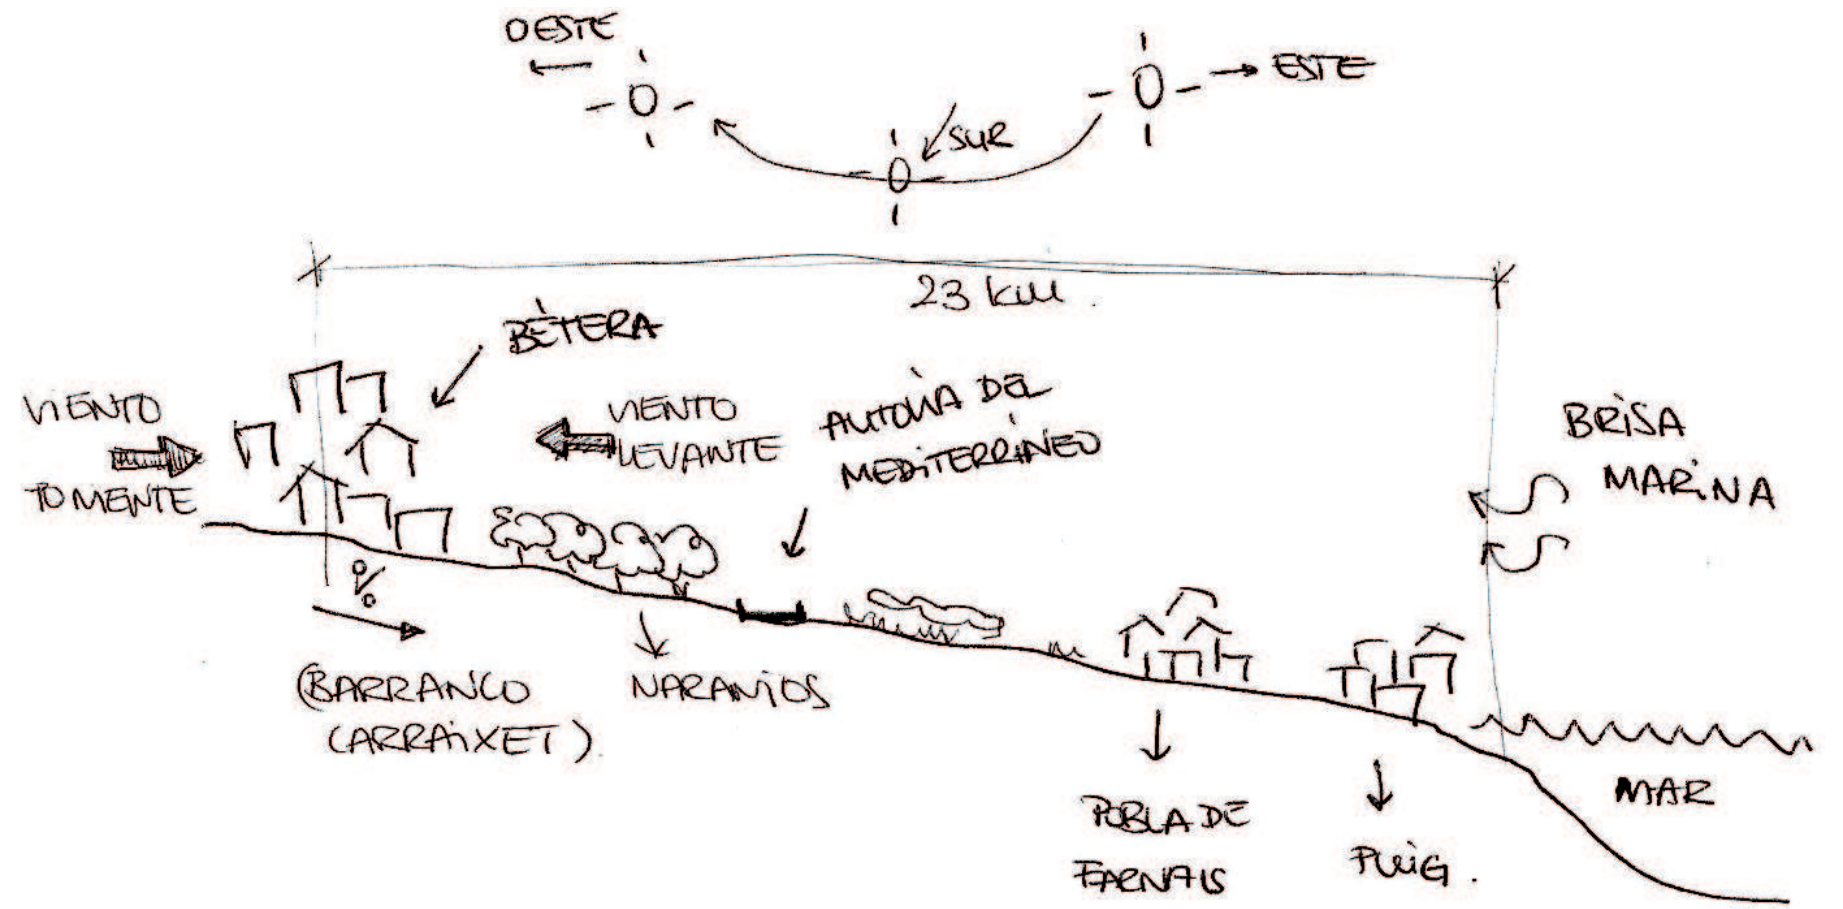 OESTE
ESTE
SUR
23 km.
BÉTERA
VIENTO
TOMENTE
VIENTO
LEVANTE
AUTOVÍA DEL
MEDITERRÁNEO
BRISA
MARINA
%
(BARRANCO
CARRAIXET)
NARANJOS
POBLA DE
FARNALS
PUIG.
MAR